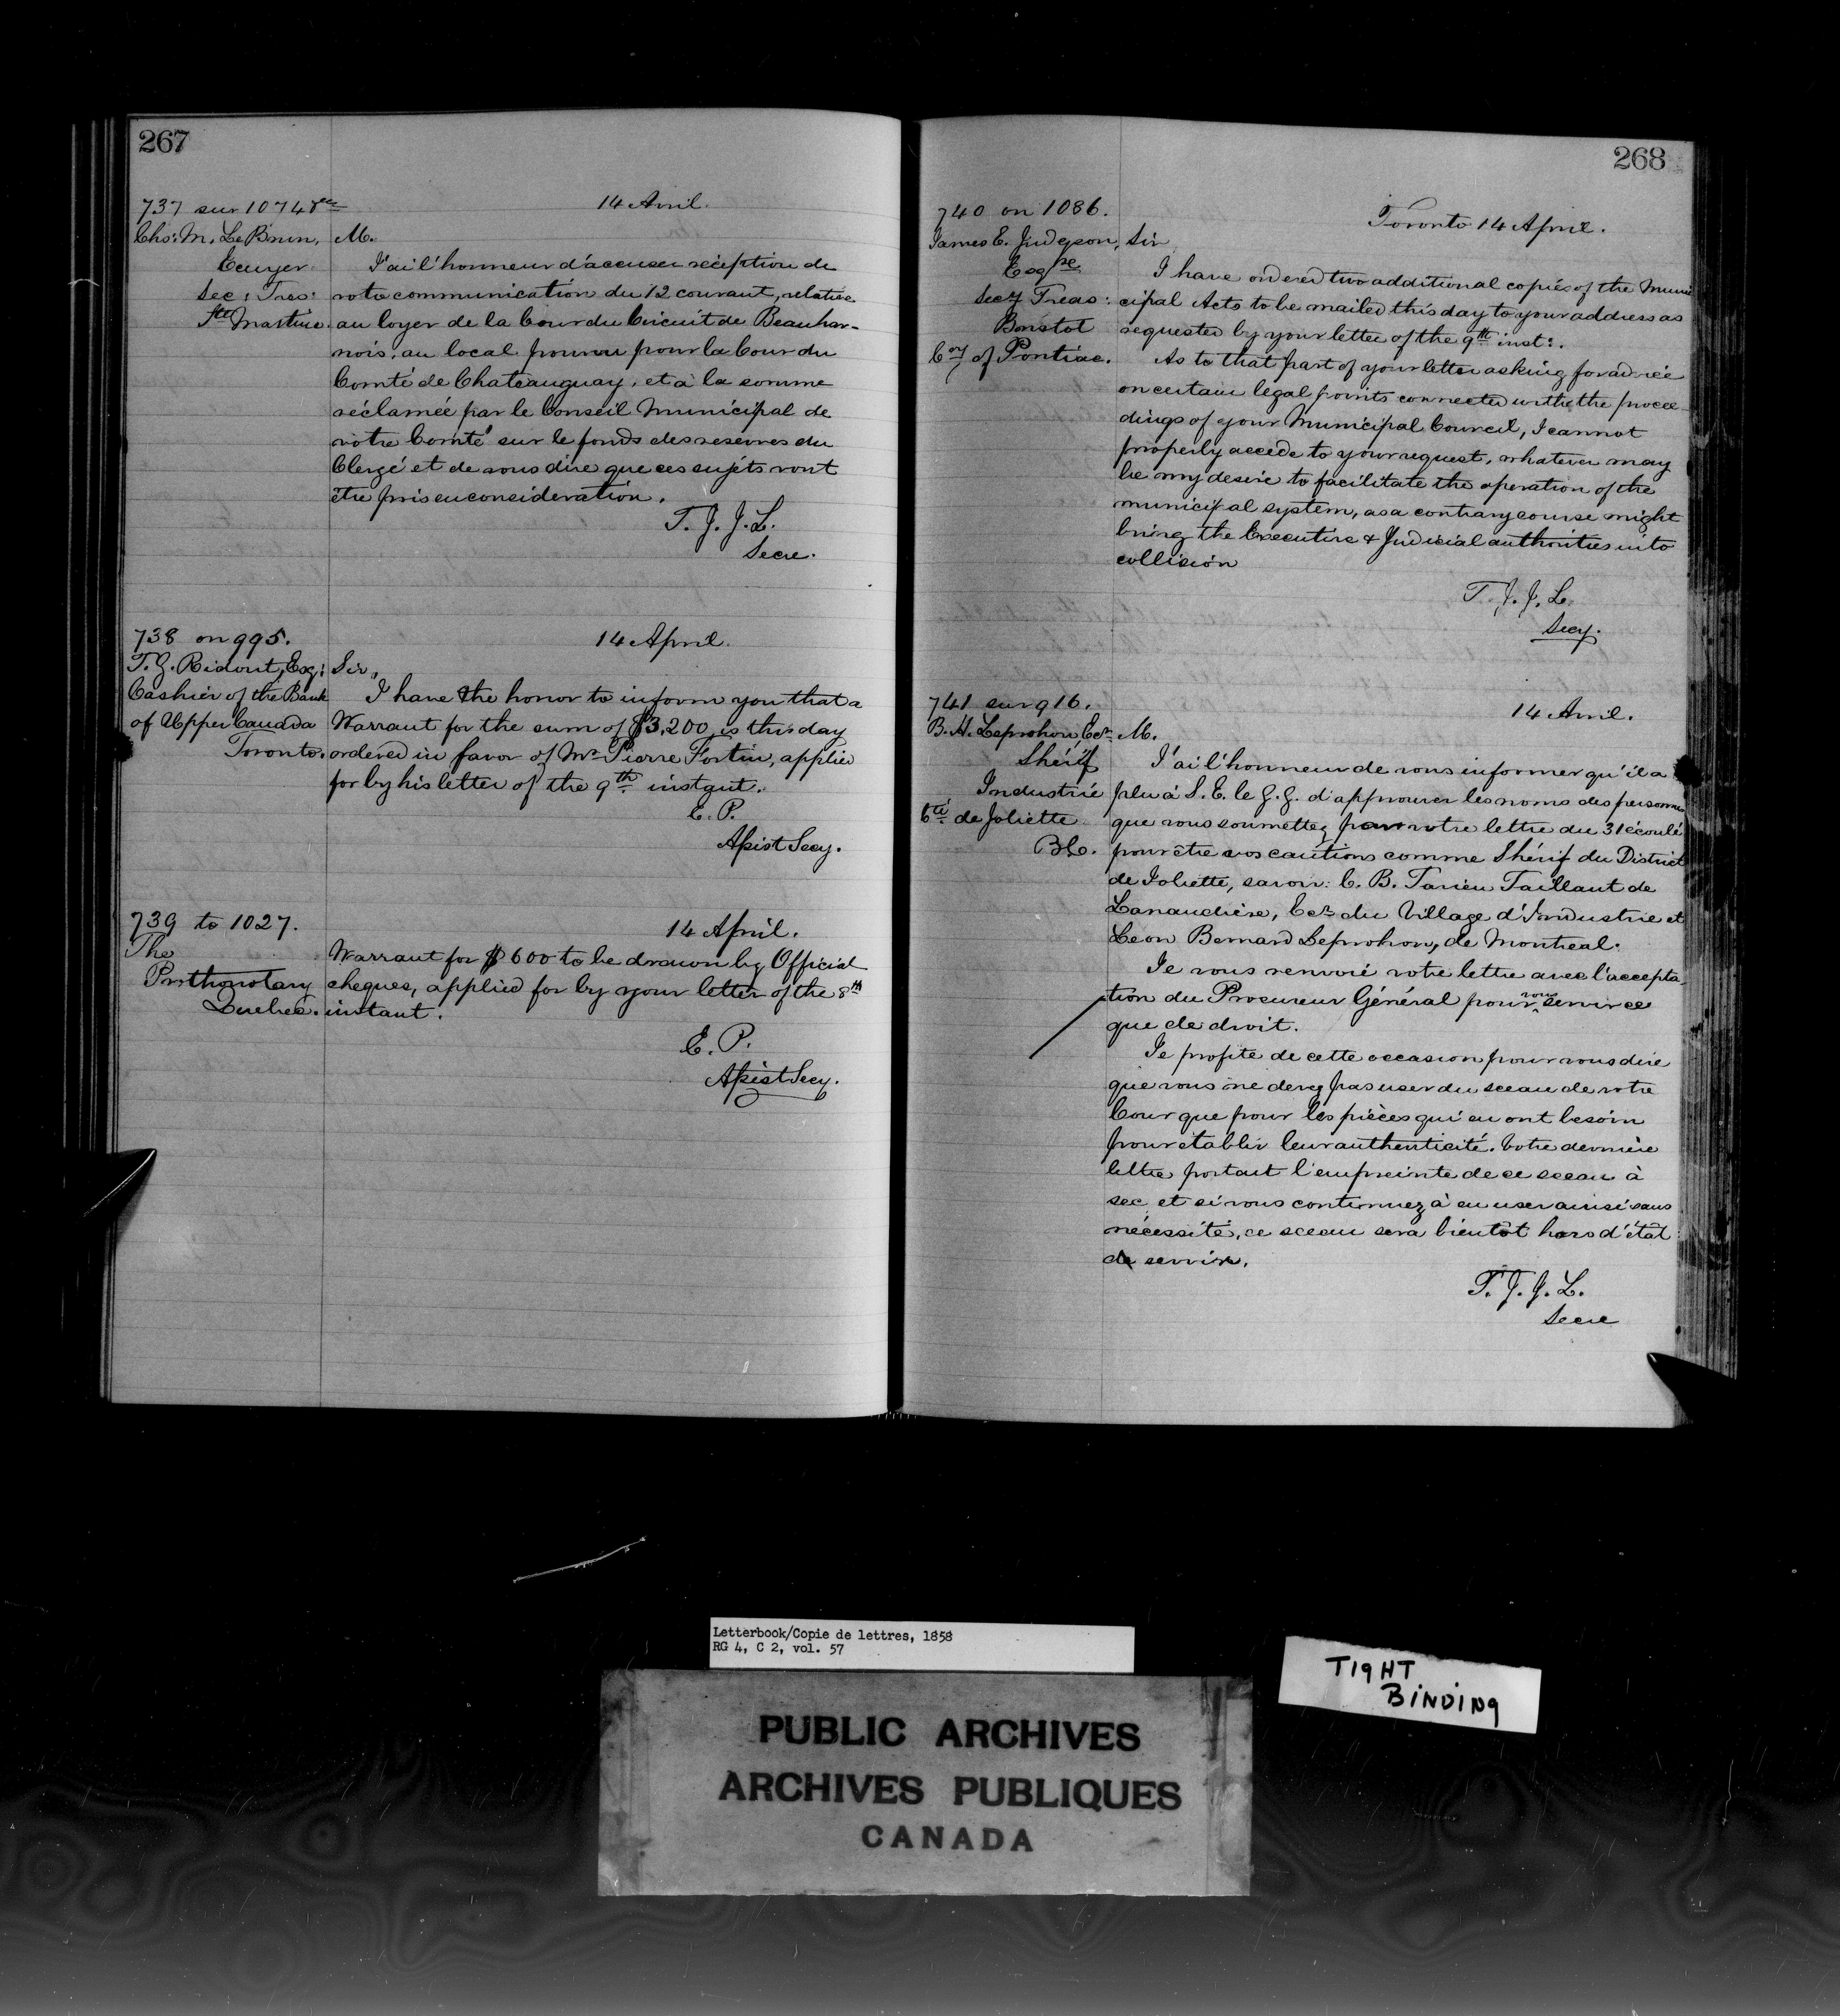 267
737 sur 1074 &c
14 Avril.
Chs: M. LeBrun,
Ecuyer
Sec: Tres:
Ste Martine.
M.
J'ai l'honneur d'accuser réception de
votre communication du 12 courant, relative
au loyer de la Cour du Circuit de Beauhar-
nois, au local pourvu pour la Cour du
Comté de Chateauguay, et à la somme
réclamée par le Conseil Municipal de
votre Comté sur le fonds des reserves du
Clergé et de vous dire que ces sujéts vont
être pris en consideration.
T. J. J. L.
Secre.
738 on 995.
14 April.
T. G. Ridout, Esq:
Cashier of the Bank
of Upper Canada
Toronto.
Sir,
I have the honor to inform you that a
Warrant for the sum of $3,200 is this day
ordered in favor of Mr Pierre Fortin, applied
for by his letter of the 9th instant.
E. P.
Assist Secy.
739 to 1027.
14 April.
The
Prothonotary
Quebec.
Warrant for $600 to be drawn by Official
cheques, applied for by your letter of the 8th
instant.
E. P.
Assist Secy.
268
740 on 1086.
Toronto 14 April.
James E. Judgson,
Esqre
Secy Treas:
Bristol
Coy of Pontiac.
Sir
I have ordered two additional copies of the Muni
cipal Acts to be mailed this day to your address as
requested by your letter of the 9th inst:.
As to that part of your letter asking for advice
on certain legal points connected with the procee-
dings of your Municipal Council, I cannot
properly accede to your request, whatever may
be my desire to facilitate the operation of the
municipal system, as a contrary course might
bring the Executive & Judicial authorities into
collision
T. J. J. L.
Secy.
741 sur 916.
14 Avril.
B. H. Leprohon Ecr
Shérif
Industrie
Cté de Joliette
B C.
M.
J'ai l'honneur de vous informer qu'il a
plu à S. E. le G. G. d'approuver les noms des personnes
que vous soumettez par votre lettre du 31 écoulé
pour être vos cautions comme Shérif du District
de Joliette, savoir: C. B. Tarieu Taillant de
Lanaudière, Ecr du Village d'Industrie et
Leon Bernard Leprohon, de Montreal.
Je vous renvoie votre lettre avec l'accepta-
tion du Procureur Général pour vous servir ce
que de droit.
Je profite de cette occasion pour vous dire
que vous ne devez pas user du sceau de votre
Cour que pour les pièces qui en ont besoin
pour établir leur authenticité. Votre dernière
lettre portait l'empreinte de ce sceau à
sec et si vous continuez à en user ainsi sans
nécessité, ce sceau sera bientôt hors d'état
de servir.
T. J. J. L.
Secre
Letterbook/Copie de lettres, 1858
RG 4, C 2, vol. 57
TIGHT
BINDING
PUBLIC ARCHIVES
ARCHIVES PUBLIQUES
CANADA